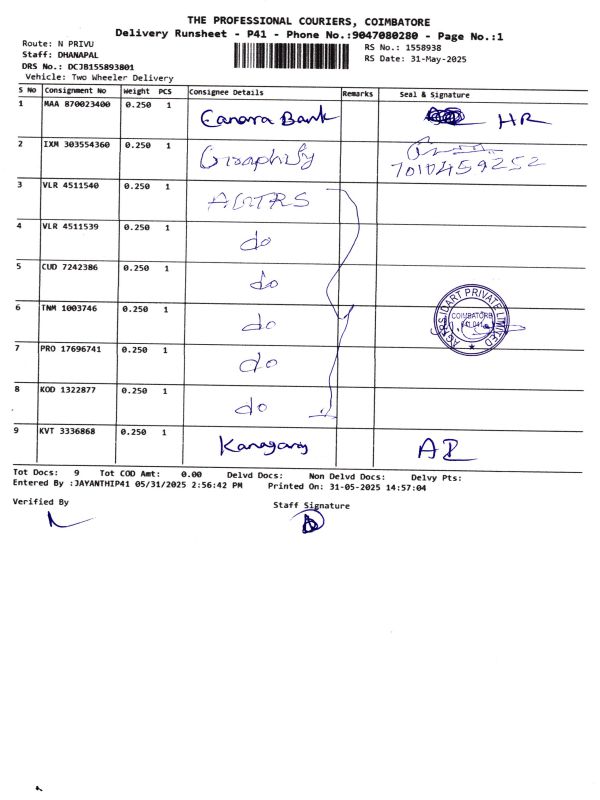 THE PROFESSIONAL COURIERS, COIMBATORE
Delivery Runsheet - P41 - Phone No.:9047080280 - Page No.:1
Route: N PRIVU
Staff: DHANAPAL
DRS No.: DCJB155893801
Vehicle: Two Wheeler Delivery
RS No.: 1558938
RS Date: 31-May-2025
S No Consignment No Weight PCS Consignee Details Remarks Seal & Signature
1 MAA 870023400 0.250 1 Canara Bank HR
2 IXM 303554360 0.250 1 7010459252
3 VLR 4511540 0.250 1
4 VLR 4511539 0.250 1 do
5 CUD 7242386 0.250 1 do
6 TNM 1003746 0.250 1 do
AGERS IDART PRIVATE LIMITED
COIMBATORE
641 041
7 PRO 17696741 0.250 1 do
8 KOD 1322877 0.250 1 do
9 KVT 3336868 0.250 1
Tot Docs: 9 Tot COD Amt: 0.00 Delvd Docs: Non Delvd Docs: Delvy Pts:
Entered By :JAYANTHIP41 05/31/2025 2:56:42 PM Printed On: 31-05-2025 14:57:04
Verified By
Staff Signature